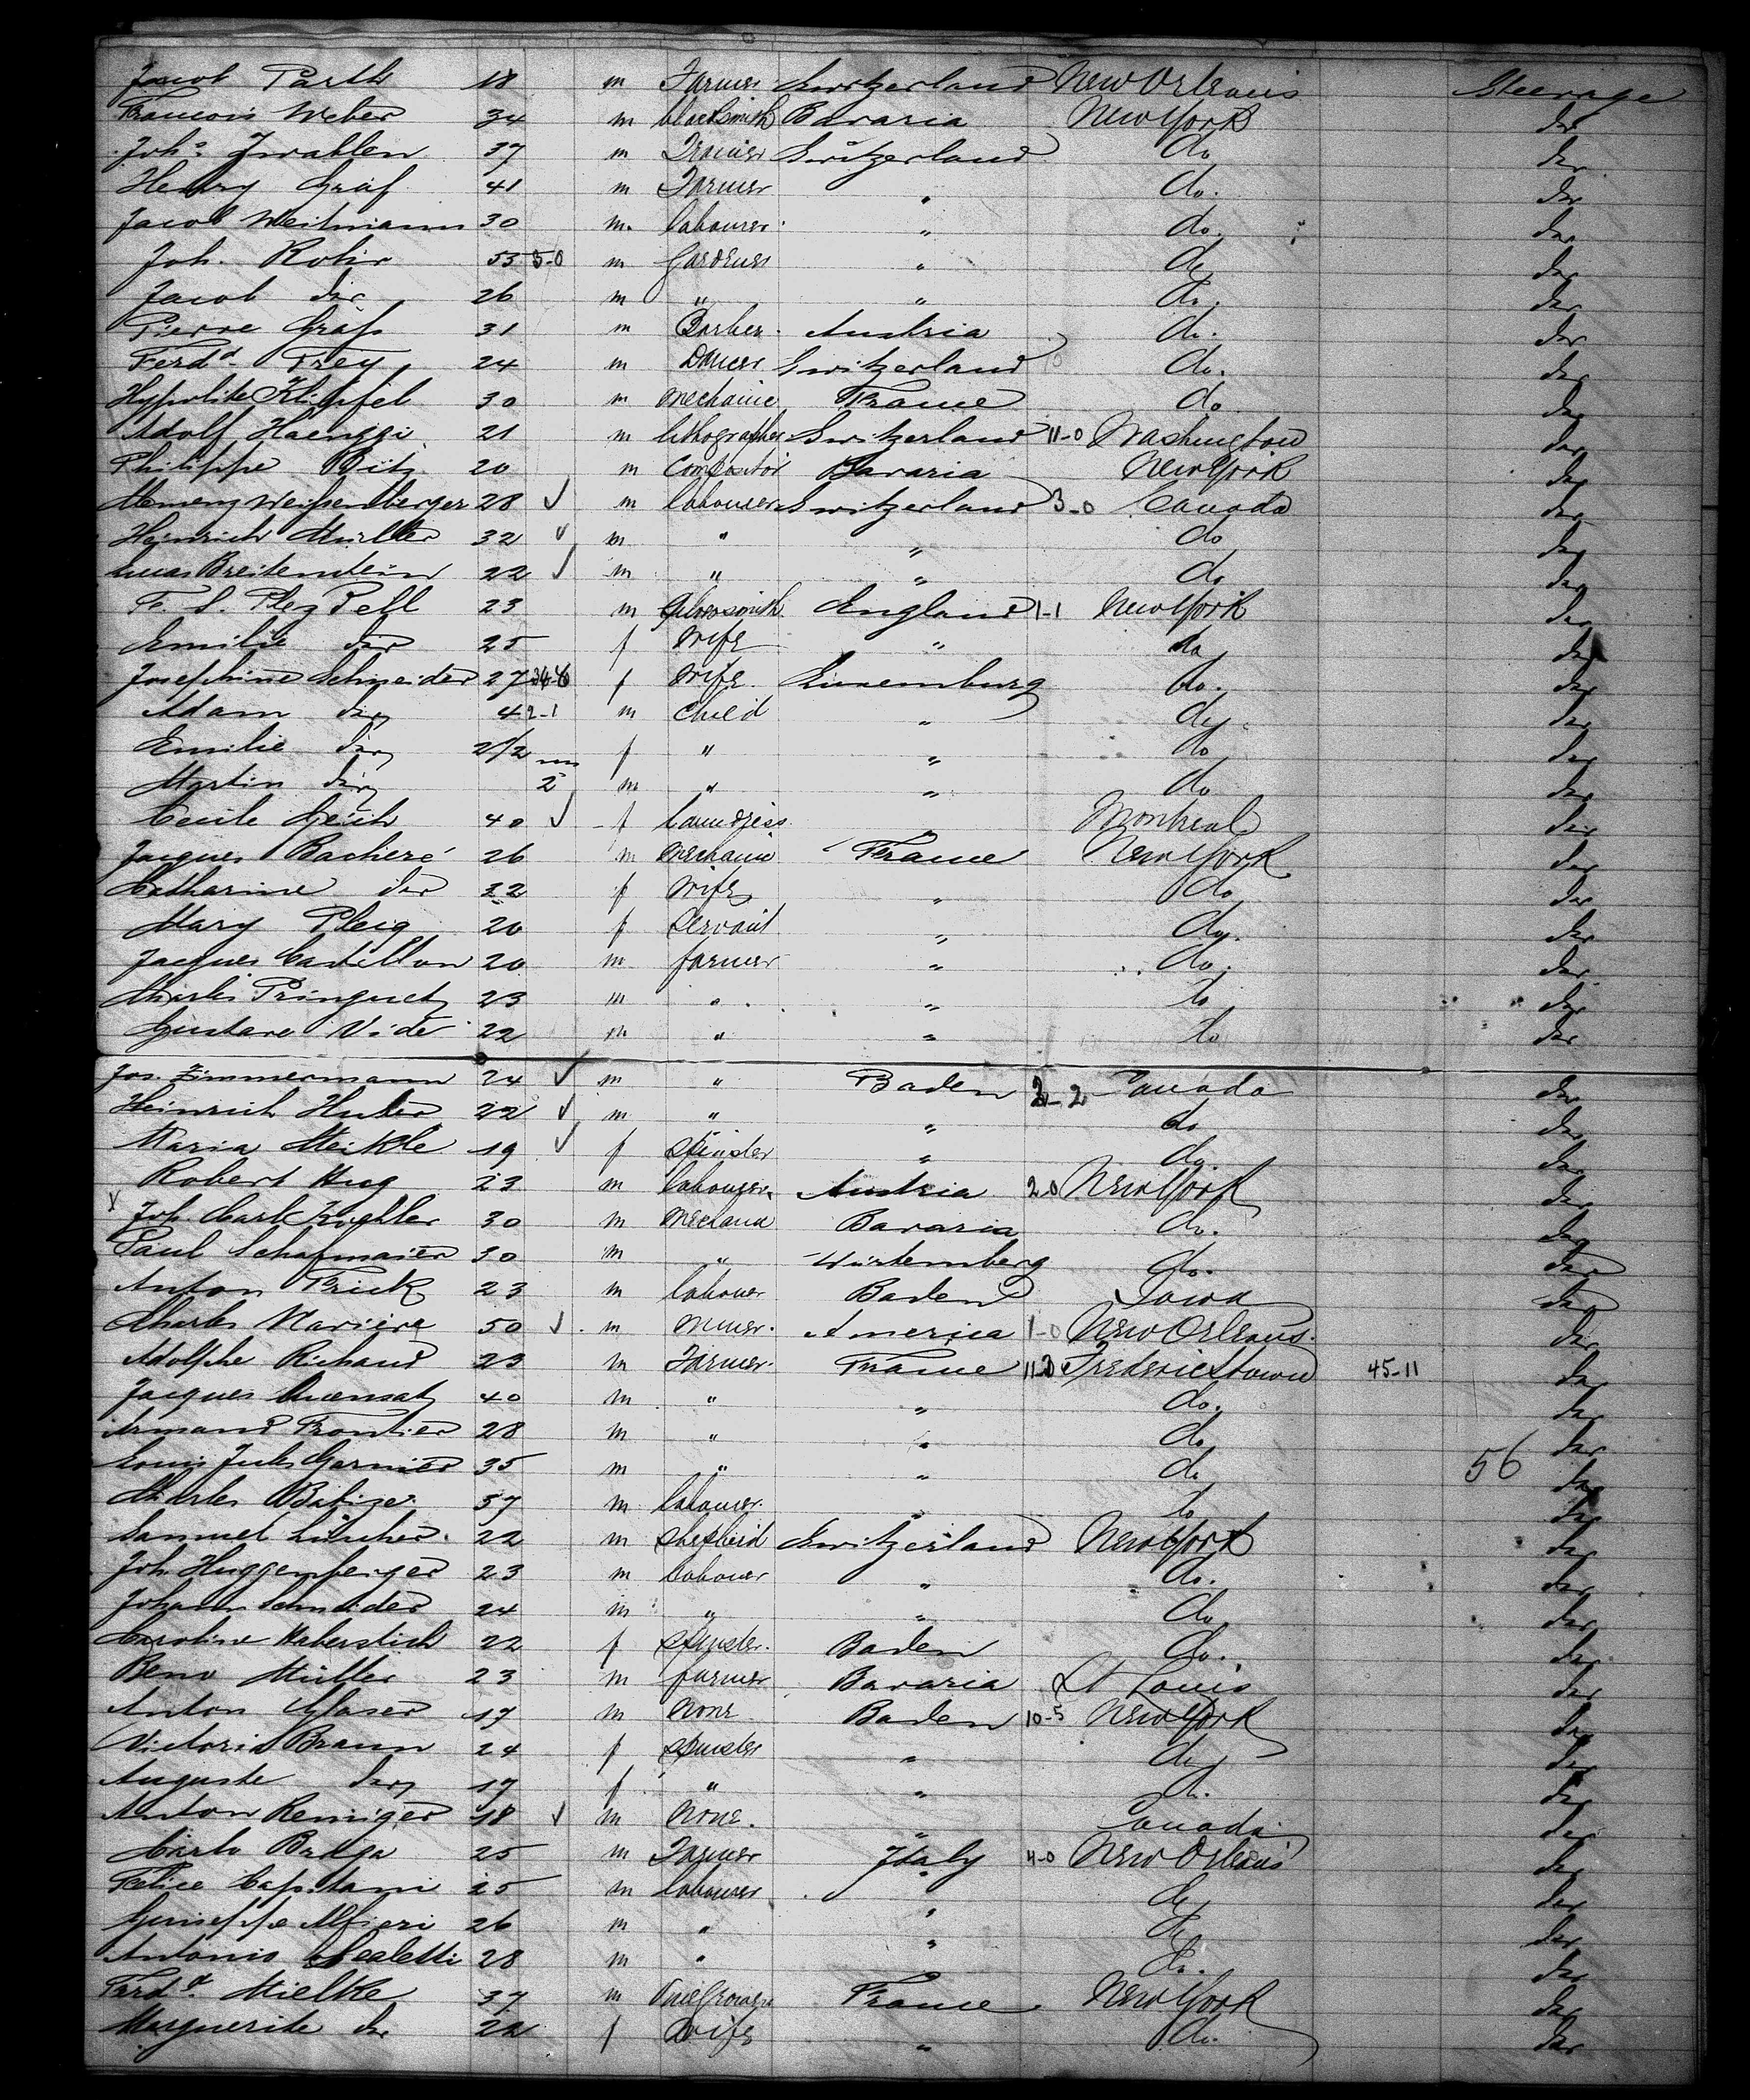 Jacob Parth 18 m Farmer Switzerland New Orleans Steerage
Francois Weber 34 m blacksmith Bavaria New York do
Joh.s Zwahlen 37 m Farmer Switzerland do do
Henry Graf 41 m Farmer " do. do
Jacob Weitmann 30 m. labourer " do. do
Joh. Rohr 53 5-0 m Gardener " do do
Jacob do 26 m " " do. do
Pierre Graf 31 m Barber Austria do. do
Ferd.d Frey 24 m Dancer Switzerland do. do
Hypolite Klipfel 30 m Mechanic France do do
Adolf Haenggi 21 m lithographer Switzerland 11-0 Washington do
Philippe Bitz 20 m Compositor Bavaria New York do
Weissenberger 28 ✓ m labourer Switzerland 3-0 Canada do
Heinrich Müller 32 ✓ m " " do do
Lucas Breitenstein 22 ✓ m " " do do
F. S. Pley Pell 23 m Silversmith England 1-1 New York do
Emilie do 25 f Wife " do do
Josephine Schneider 27 f Wife Luxemburg do. do
Adam do 4 2-1 m Child " do do
Emilie do 2 1/2 f " " do do
Martin do 2 m " " do do
Cecile Geich 40 ✓ f Laundress " Montreal do
Jacques Bacheré 26 m Mechanic France New York do
Catharine do 22 f Wife " do do
Mary Pleig 20 f Servant " do. do
Jacques Castellon 20 m farmer " do. do
Charles Pringuet 23 m " " do do
Gustave Vide 22 m " " do do
Jos. Zimmermann 24 ✓ m " Baden 2-2 Canada do
Heinrich Huter 22 ✓ m " " do do
Maria Meikle 19 ✓ f Spinster " do. do
Robert Hug 23 m labourer Austria 2-0 New York do
Joh. Carl Zoehler 30 m Mechanic Bavaria do. do
Paul Schafmaier 30 m " Würtemberg do. do
Anton Frick 23 m labourer Baden Iowa do
Charles Mariere 50 ✓ m Miner America 1-0 New Orleans do
Adolphe Richard 23 m Farmer France Fredericktown 45-11 do
Jacques Quensat 40 m " " do. do
Armand Frontier 28 m " " do do
Louis Jules Garnier 35 m " " do 56 do
Charles Batize 37 m labourer " do do
Samuel Lüscher 22 m Shepherd Switzerland New York do
Joh. Huggenberger 23 m labourer " do. do
Johann Schneider 24 m " " do do
Caroline Haberstich 22 f Spinster Baden do. do
Beno Müller 23 m farmer Bavaria St Louis do
Anton Glaser 17 m None Baden 10-5 New York do
Victoria Braun 24 f Spinster " do do
Auguste do 17 f " " do. do
Anton Reiniger 18 ✓ m None. " Canada do
Carlo Braga 25 m Farmer Italy 4-0 New Orleans do
Felice Capitani 25 m labourer " do do
Guiseppe Alfieri 26 m " " do do
Antonio Scaletti 28 m " " do. do
Ferd.d Mielke 37 m Vinegrower France New York do
Marguerite do 22 f Wife " do. do